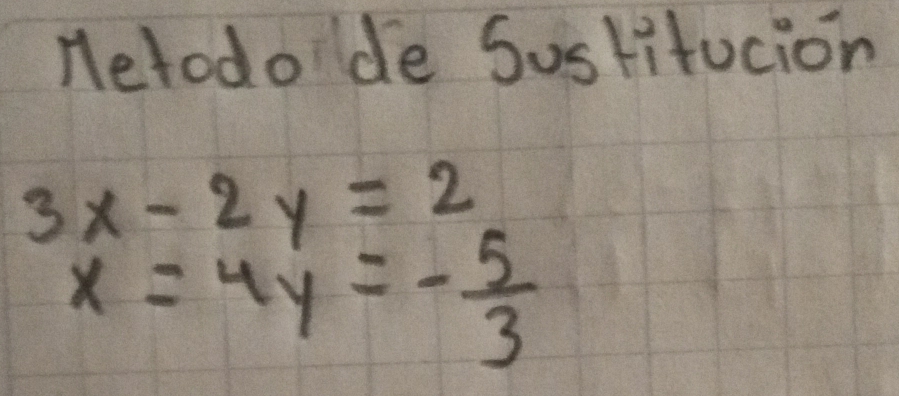 Metodo de Sustitución
3x - 2y = 2
x = 4y = - 5/3